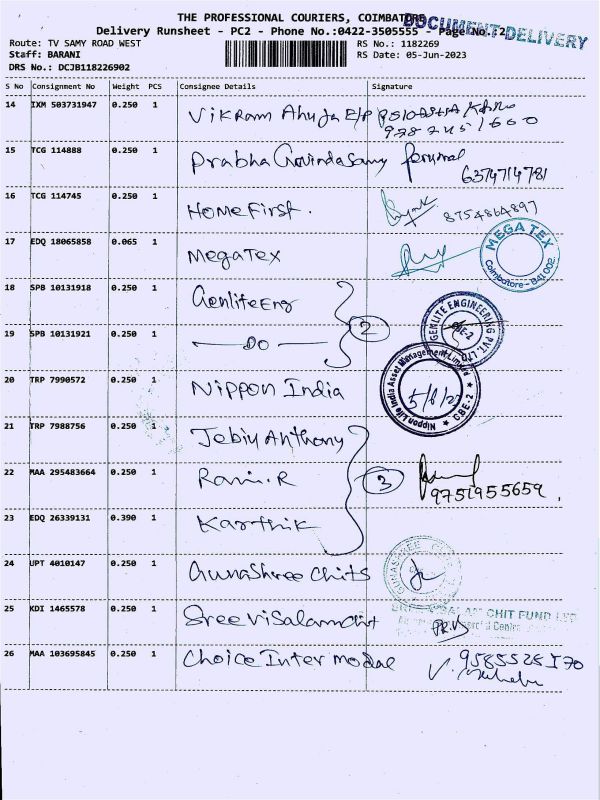 THE PROFESSIONAL COURIERS, COIMBATORE
DOCUMENT DELIVERY
Delivery Runsheet - PC2 - Phone No.:0422-3505555 - Page No. 2
Route: TV SAMY ROAD WEST
RS No.: 1182269
Staff: BARANI
RS Date: 05-Jun-2023
DRS No.: DCJB118226902
S No Consignment No Weight PCS Consignee Details Signature
14 IXM 503731947 0.250 1 Vikram Ahuja E/P
15 TCG 114888 0.250 1 Prabha Govindasamy Perumal
6374714781
16 TCG 114745 0.250 1 Home First. 8754864897
17 EDQ 18065858 0.065 1 MegaTex
MEGA TEX
Coimbatore - 641 002.
18 SPB 10131918 0.250 1 Genlite Eng
GENLITE ENGINEERING PVT. LTD
CBE-2
19 SPB 10131921 0.250 1 — DO — 2
20 TRP 7990572 0.250 1 Nippon India
Nippon Life India Asset Management Limited
CBE-2
5/6/23
21 TRP 7988756 0.250 1 Jebiy Anthony
22 MAA 295483664 0.250 1 Rani.R 3
9751955659
23 EDQ 26339131 0.390 1 Karthik
24 UPT 4010147 0.250 1 Gunashree Chits
GUNASHREE
25 KDI 1465578 0.250 1 Sree Visalam Chit
CHIT FUND LTD
26 MAA 103695845 0.250 1 Choice Inter modal
9585528570